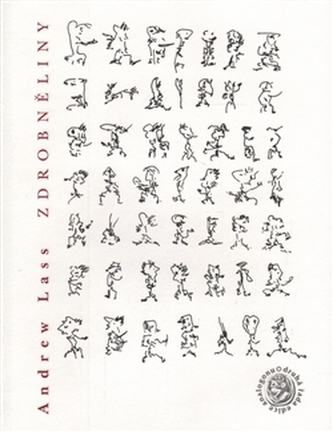 Andrew Lass ZDROBNĚLINY
analogonu druhá řada edice